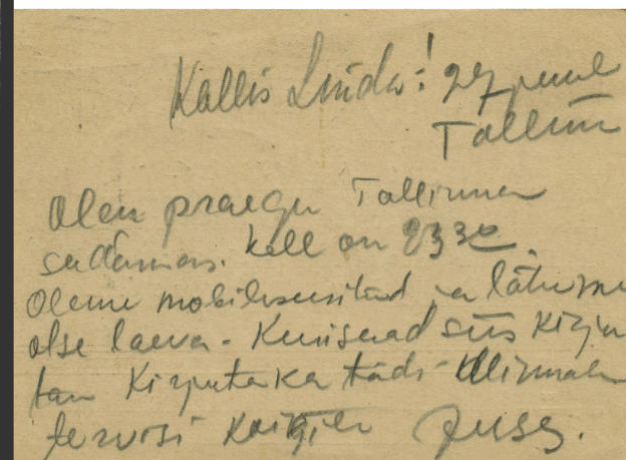 Kallis Linda! 27 juul
Tallinn
Olen praegu Tallinna
sadamas. Kell on 23 30.
Oleme mobiliseeritud ja lähme
otse laeva. Kui saad siis kirju
tan Kirjuta ka tädi
tervisi kõigile